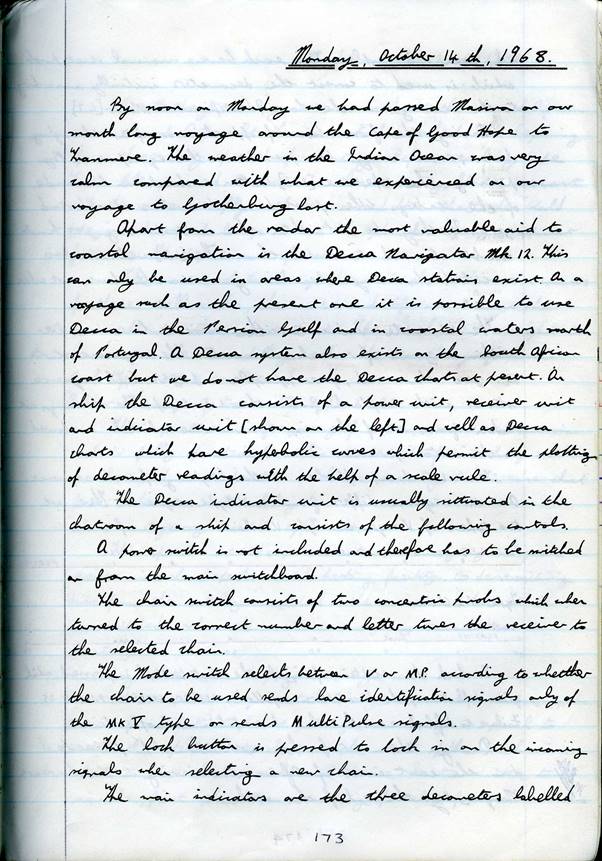 Monday, October 14th, 1968.
By noon on Monday we had passed Masira on our
month long voyage around the Cape of Good Hope to
Tranmere. The weather in the Indian Ocean was very
calm compared with what we experienced on our
voyage to Gothenburg last.
Apart from the radar the most valuable aid to
coastal navigation is the Decca Navigator Mk 12. This
can only be used in areas where Decca stations exist. On a
voyage such as the present one it is possible to use
Decca in the Persian Gulf and in coastal waters north
of Portugal. A Decca system also exists on the South African
coast but we do not have the Decca charts at present. On
ship the Decca consists of a power unit, receiver unit
and indicator unit [shown on the left] and well as Decca
charts which have hyperbolic curves which permit the plotting
of decometer readings with the help of a scale rule.
The Decca indicator unit is usually situated in the
chartroom of a ship and consists of the following controls.
A power switch is not included and therefore has to be switched
on from the main switchboard.
The chain switch consists of two concentric knobs which when
turned to the correct number and letter tunes the receiver to
the selected chain.
The Mode switch selects between V or M.P. according to whether
the chain to be used sends lane identification signals only of
the Mk V type or sends MultiPulse signals.
The lock button is pressed to lock in on the incoming
signals when selecting a new chain.
The main indicators are the three decometers labelled
173